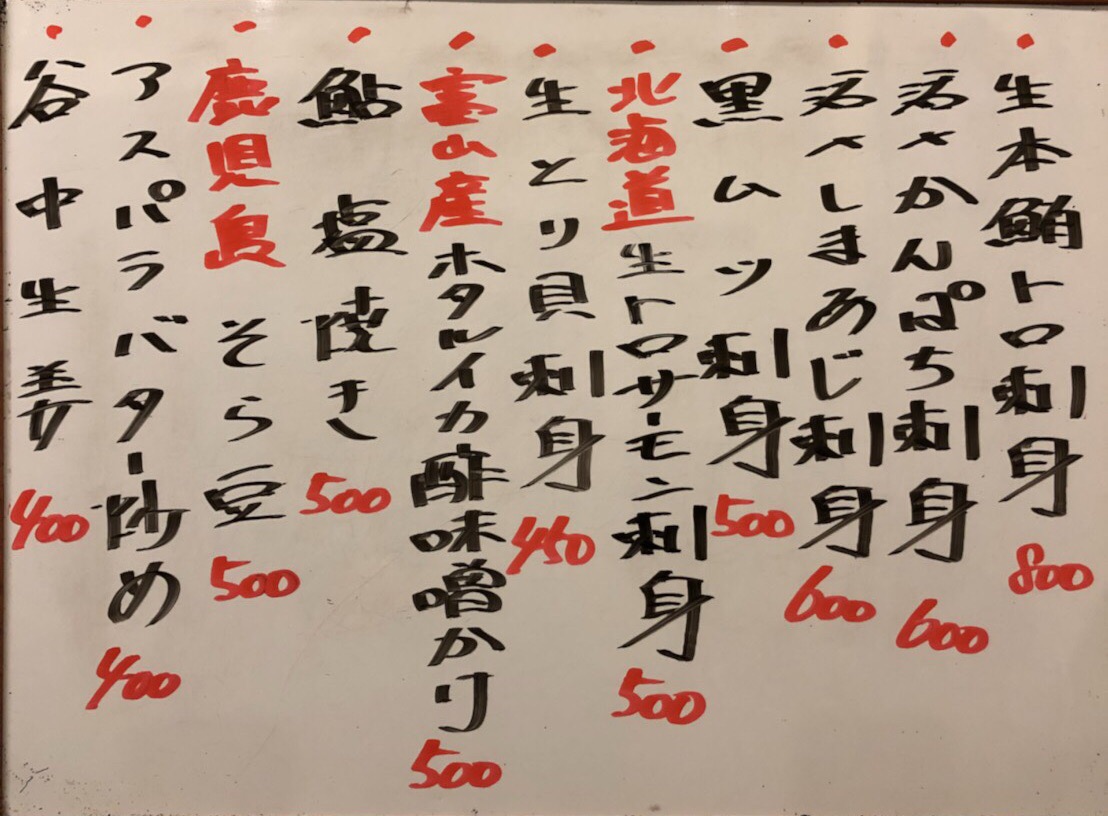 生本鮪トロ刺身 800
活〆かんぱち刺身 600
活〆しまあじ刺身 600
黒ムツ刺身 500
北海道生トロサーモン刺身 500
生とり貝刺身 450
富山産ホタルイカ酢味噌かけ 500
鮎塩焼き 500
鹿児島そら豆 500
アスパラバター炒め 400
谷中生姜 400